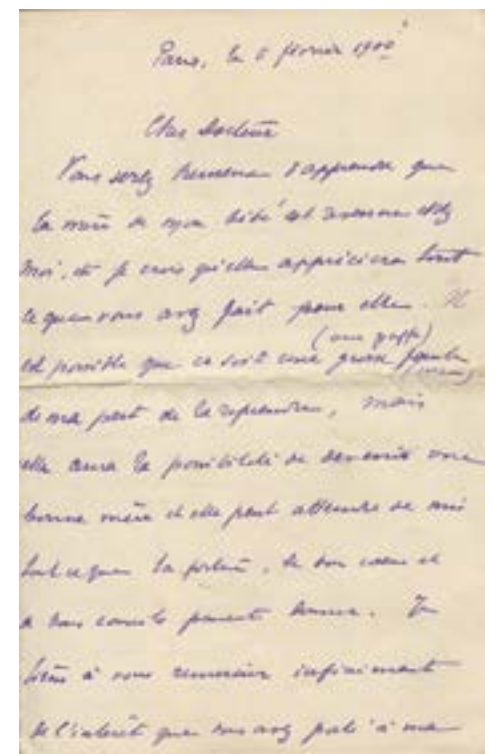 Paris, le 6 février 1900
Cher Docteur
Vous serez heureux d'apprendre que
la mère de mon bébé est revenue chez
moi, et je crois qu'elle appréciera tout
ce que vous avez fait pour elle. Il
(une gaffe)
est possible que ce soit une grosse faute
de ma part de la reprendre, mais
elle aura la possibilité de devenir une
bonne mère et elle peut attendre de moi
tout ce que la fortune, le bon cœur et
bons conseils peuvent donner. Je
tiens à vous remercier infiniment
de l'intérêt que vous avez porté à ma